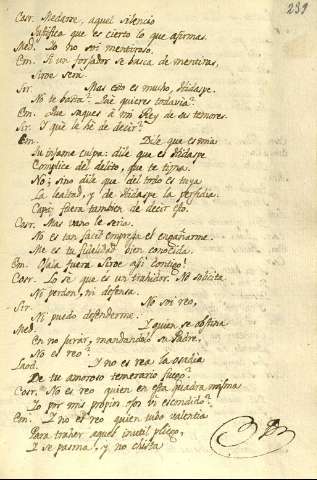 239
Cosr. Medarse, aquel silencio
Justifica que es cierto lo que afirmas.
Med. Yo no soi mentiroso.
Em. Si un forjador se busca de mentiras,
Siroe será.
Sir. Mas esto es mucho, Hidaspe.
No te basta? Què quieres todavia?
Em. Que saques à mi Rey de sus temores.
Sir. Y què le hè de decir?
Em. Dile que es mia
Tu infame culpa: dile que es Hidaspe
Complice del delito, que te
No; sino dile que del todo es tuya
La lealtad, y de Hidaspe la perfidia.
Capàz fuera tambien de decir esto.
Cosr. Mas vano le seria.
No es tan facil empresa el engañarme.
Me es tu fidelidad bien conocida.
Em. Ojala fuera Siroe asi contigo!
Cosr. Lo se que es un trahidor. No solicita
Ni perdon, ni defensa.
Sir. No soi reo,
Ni puedo defenderme.
Med. Y quien se obstina
En no jurar, mandandolo su Padre,
No es reo?
Laod. Y no es rea la osadia
De tu amoroso temerario fuego?
Cosr. No es reo quien en esta quadra misma
Yo por mis propios ojos vi escondido?
Em. Y no es reo quien tubo valentia
Para traher aquel inutil pliego,
Y se pasma, y no chista